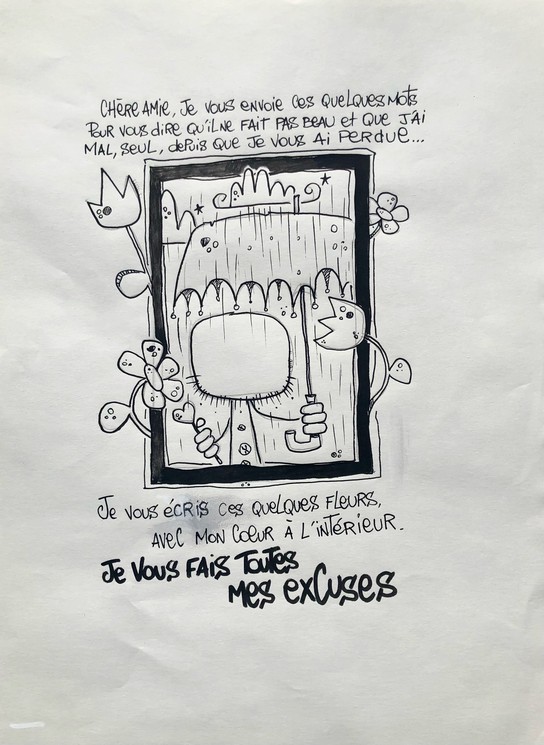 CHÈRE AMIE, JE VOUS ENVOIE CES QUELQUES MOTS
POUR VOUS DIRE QU'IL NE FAIT PAS BEAU ET QUE J'AI
MAL, SEUL, DEPUIS QUE JE VOUS AI PERDUE...
JE VOUS ÉCRIS CES QUELQUES FLEURS,
AVEC MON COEUR À L'INTÉRIEUR.
JE VOUS FAIS TOUTES
MES EXCUSES